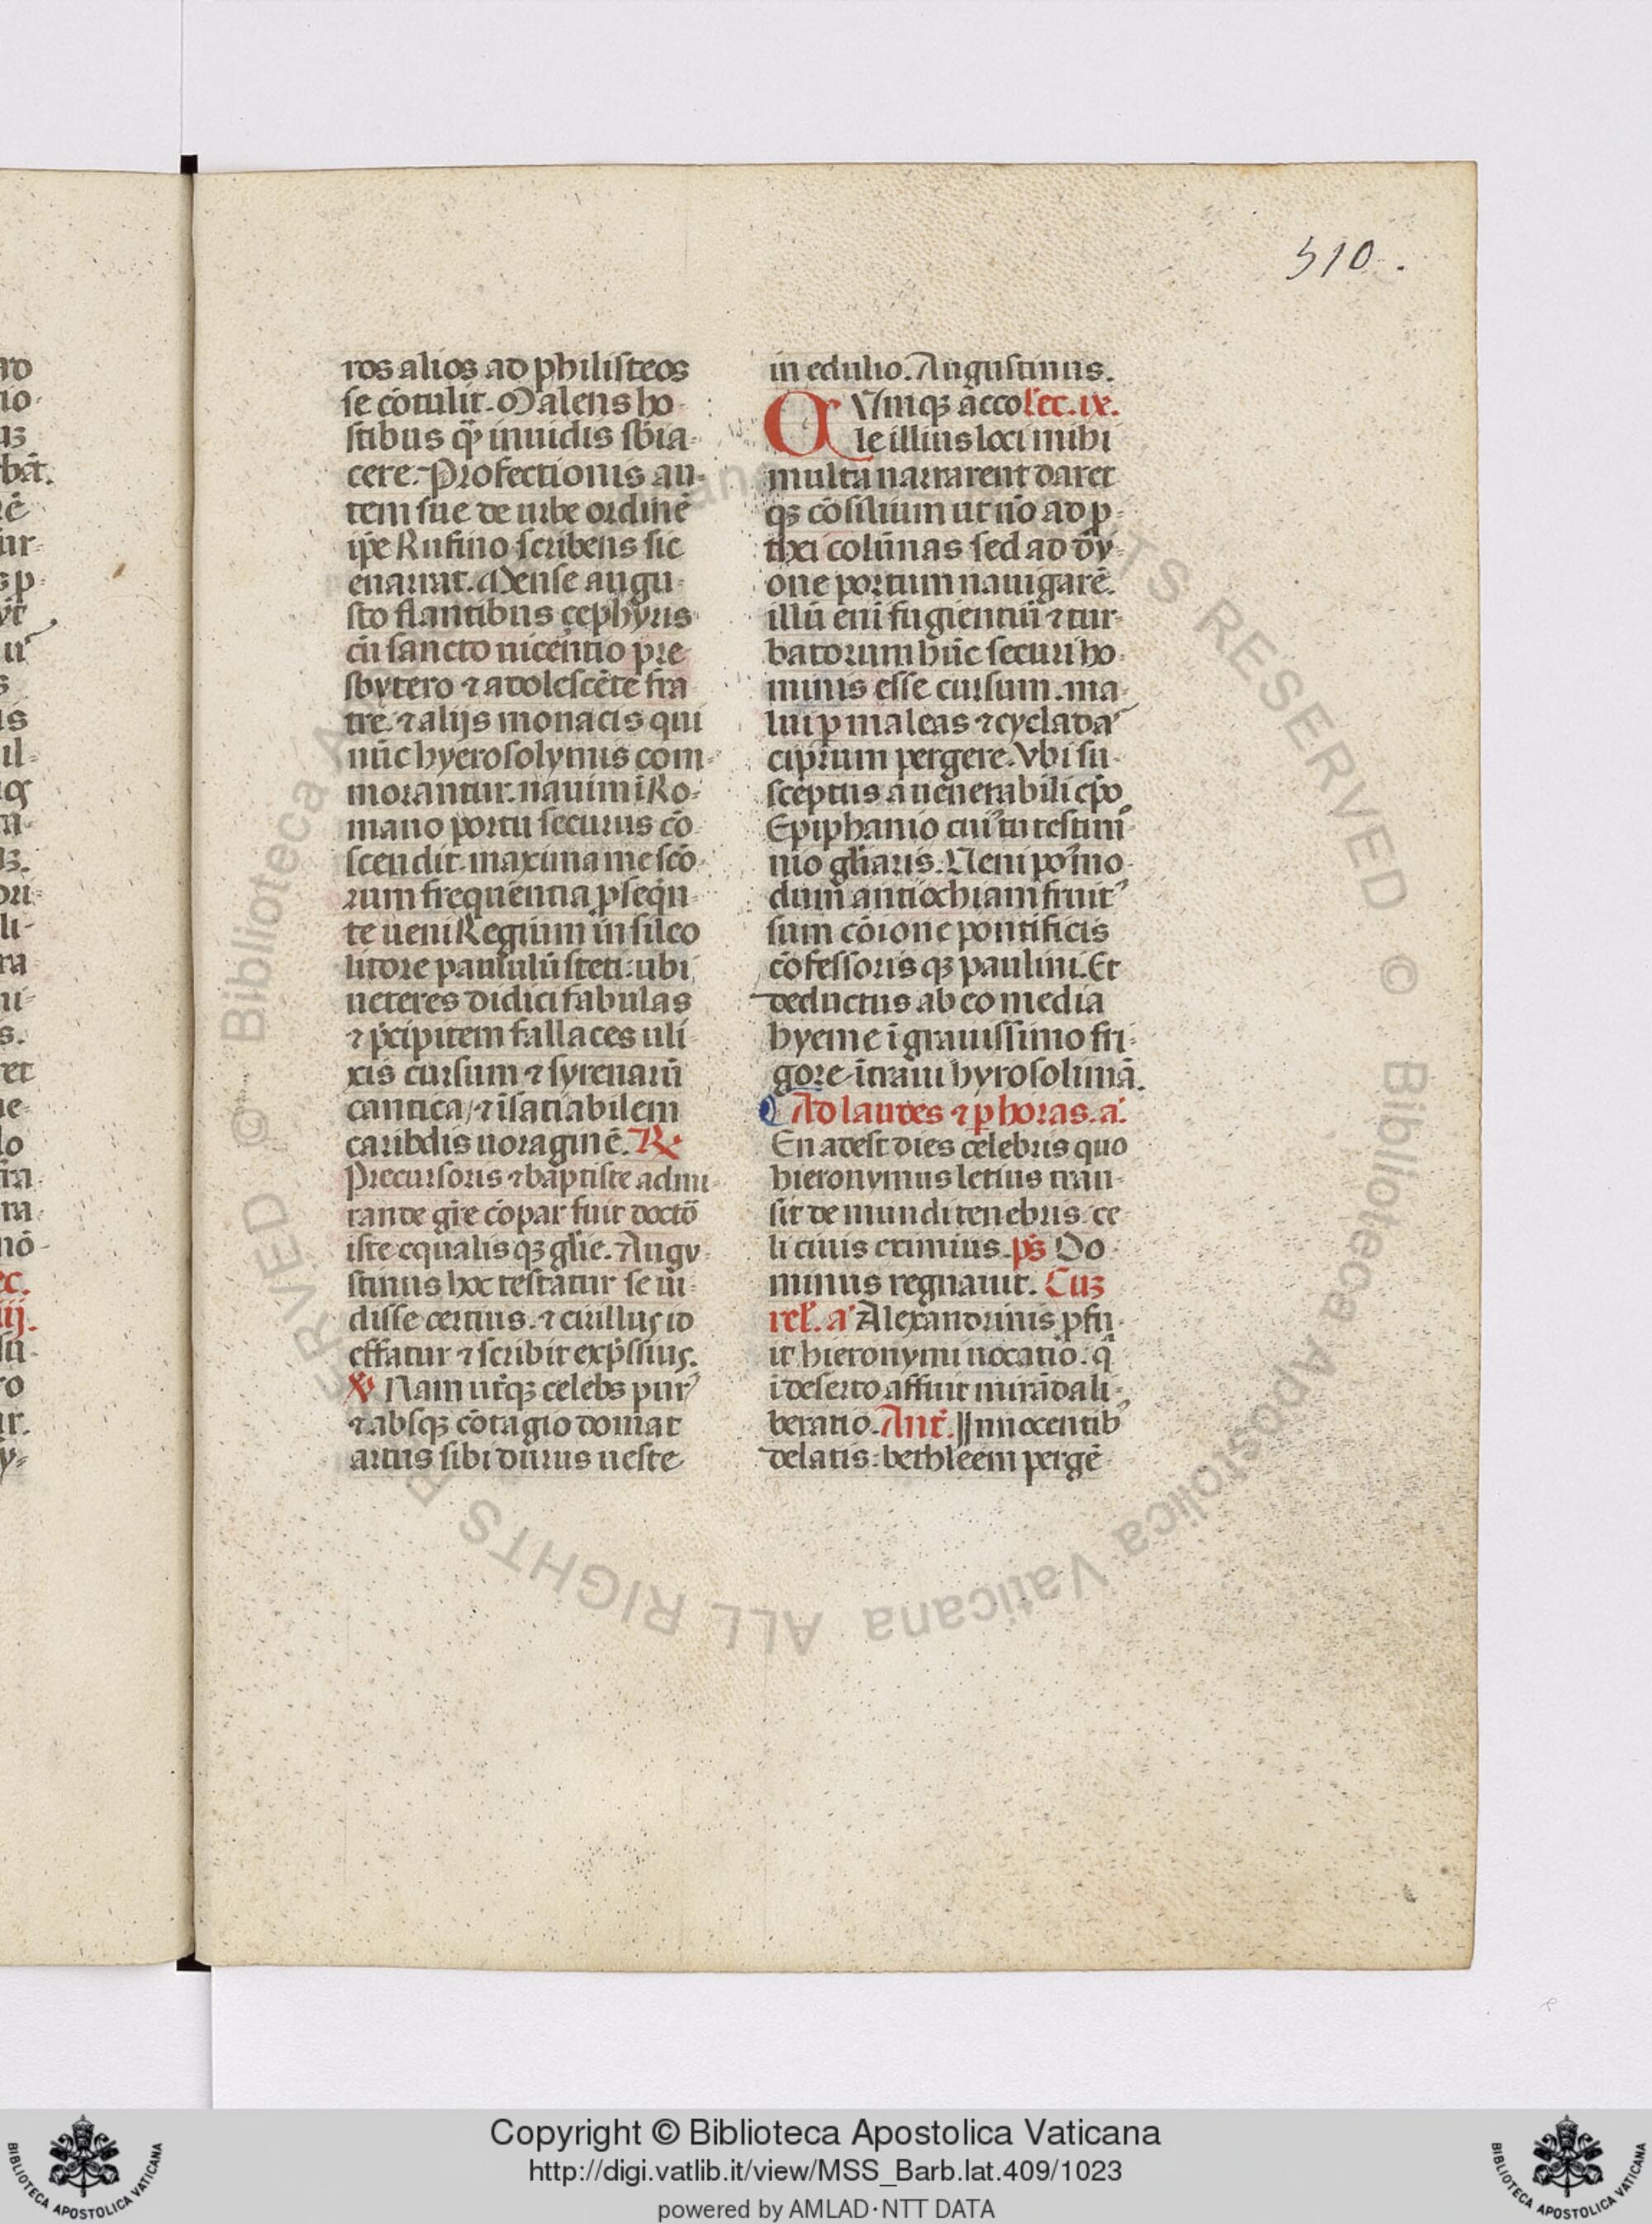 510.
ros alios ad philisteos
se cōtulit. Malens ho-
stibus qȝ inuidis sbia-
cere. Profectionis au-
tem sue de urbe ordinē
ip̄e Rufino scribens sic
enarrat. Mense augu-
sto flantibus cephyris
cū sancto uicentio pre-
sbytero ⁊ adolescēte fra
tre. ⁊ alijs monacis qui
nūc hyerosolymis com-
morantur. nauim ī Ro-
mano portu securus cō
scendit. maxima me scō-
rum frequentia pseqū-
te ueni Regium in sileo
litore paululū steti: ubi
ueteres didici fabulas
⁊ p̄cipitem fallaces uli
xis cursum ⁊ syrenarū
cantica, ⁊ īsatiabilem
caribdis uoraginē. R
Precursoris ⁊ baptiste admi-
rande grē cōpar fuit docto
iste equalis qȝ glīe. Augu
stinus hoc testatur se ui-
disse certius. ⁊ cirillus id
effatur ⁊ scribit exp̄ssius.
V Nam utqȝ celebs pur
⁊ absqȝ cōtagio domat
artus sibi durus ueste
in edulio. Augustinus.
CVmqȝ acco lec. ix.
le illius loci mihi
multa narrarent daret
qȝ cōsilium ut nō ad p-
thei colūnas sed ad dy-
one portum nauigarē.
illū enī fugientiū ⁊ tur-
batorum hūc securi ho-
minis esse cursum. ma-
lui p maleas ⁊ cyclada
ciprum pergere. Vbi su-
sceptus a uenerabili ep̄o
Epiphanio cui tu testim-
nio glīaris. Ueni po mo-
dum antiochiam fruit
sum cōione pontificis
cōfessoris qȝ paulini. Et
deductus ab eo media
hyeme ī grauissimo fri-
gore ītraui hyrosolimā.
Ad laudes ⁊ p horas. a.
En adest dies celebris quo
hieronymus letius tran-
sit de mundi tenebris ce
li ciuis eximius. ps Do-
minus regnauit. Cuȝ
rel. a Alexandrinis pfu-
it hieronymi uocatio. q̄
ī deserto affuit mirāda li-
beratio. Ant. Innocentib
delatis: bethleem pergē
Copyright © Biblioteca Apostolica Vaticana
http://digi.vatlib.it/view/MSS_Barb.lat.409/1023
powered by AMLAD·NTT DATA